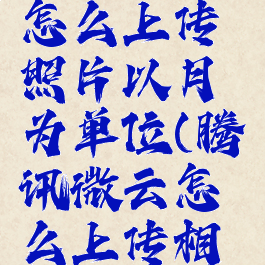 怎么上传
照片以月
为单位(腾
讯微云怎
么上传相